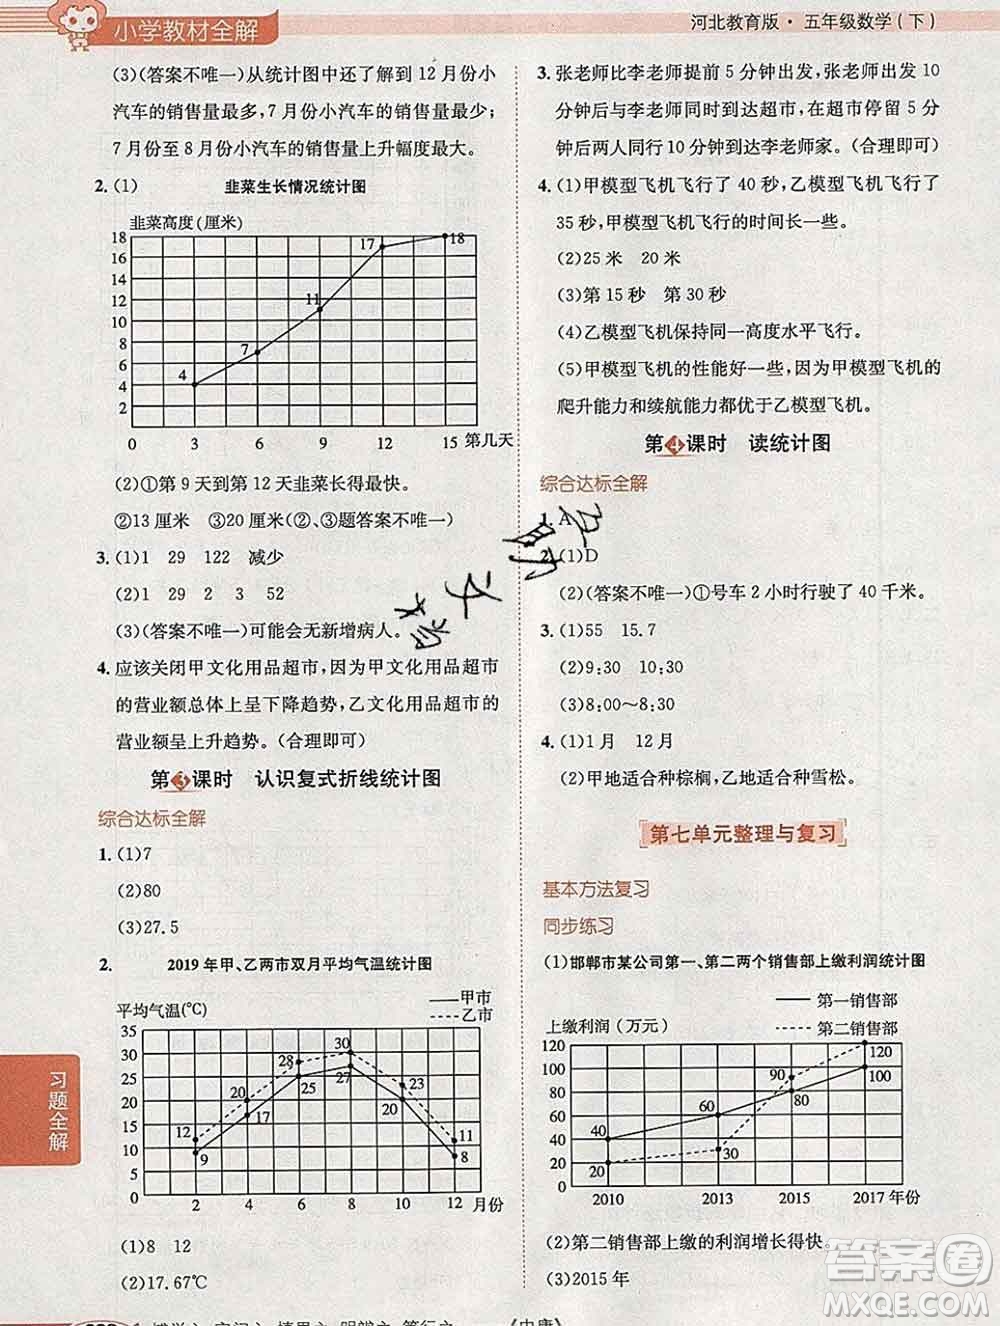 小学教材全解
河北教育版·五年级数学(下)
(3)(答案不唯一)从统计图中还了解到12月份小
汽车的销售量最多,7月份小汽车的销售量最少;
7月份至8月份小汽车的销售量上升幅度最大。
2.(1) 韭菜生长情况统计图
韭菜高度(厘米)
18
16
14
12
10
8
6
4
2
4
7
11
17
18
0 3 6 9 12 15 第几天
(2)①第9天到第12天韭菜长得最快。
②13厘米 ③20厘米(②、③题答案不唯一)
3.(1)1 29 122 减少
(2)1 29 2 3 52
(3)(答案不唯一)可能会无新增病人。
4.应该关闭甲文化用品超市,因为甲文化用品超市
的营业额总体上呈下降趋势,乙文化用品超市的
营业额呈上升趋势。(合理即可)
第3课时 认识复式折线统计图
综合达标全解
1.(1)7
(2)80
(3)27.5
2. 2019年甲、乙两市双月平均气温统计图
平均气温(℃)
甲市
乙市
35
30
25
20
15
10
5
0
12 20 28 30 23 11
9 17 25 27 20 8
2 4 6 8 10 12 月份
(1)8 12
(2)17.67℃
3.张老师比李老师提前5分钟出发,张老师出发10
分钟后与李老师同时到达超市,在超市停留5分
钟后两人同时到达李老师家。(合理即可)
4.(1)甲模型飞机飞行了40秒,乙模型飞机飞行了
35秒,甲模型飞机飞行的时间长一些。
(2)25米 20米
(3)第15秒 第30秒
(4)乙模型飞机保持同一高度水平飞行。
(5)甲模型飞机的性能好一些,因为甲模型飞机的
爬升能力和续航能力都优于乙模型飞机。
第4课时 读统计图
综合达标全解
1.A
2.(1)D
(2)(答案不唯一)①号车2小时行驶了40千米。
3.(1)55 15.7
(2)9:30 10:30
(3)8:00~8:30
4.(1)1月 12月
(2)甲地适合种棕榈,乙地适合种雪松。
第七单元整理与复习
基本方法复习
同步练习
(1)邯郸市某公司第一、第二两个销售部上缴利润统计图
上缴利润(万元)
第一销售部
第二销售部
120
100
80
60
40
20
0
40 60 80 100
20 30 90 120
2010 2013 2015 2017 年份
(2)第二销售部上缴的利润增长得快。
(3)2015年
习题全解
答案圈
MXQE.COM